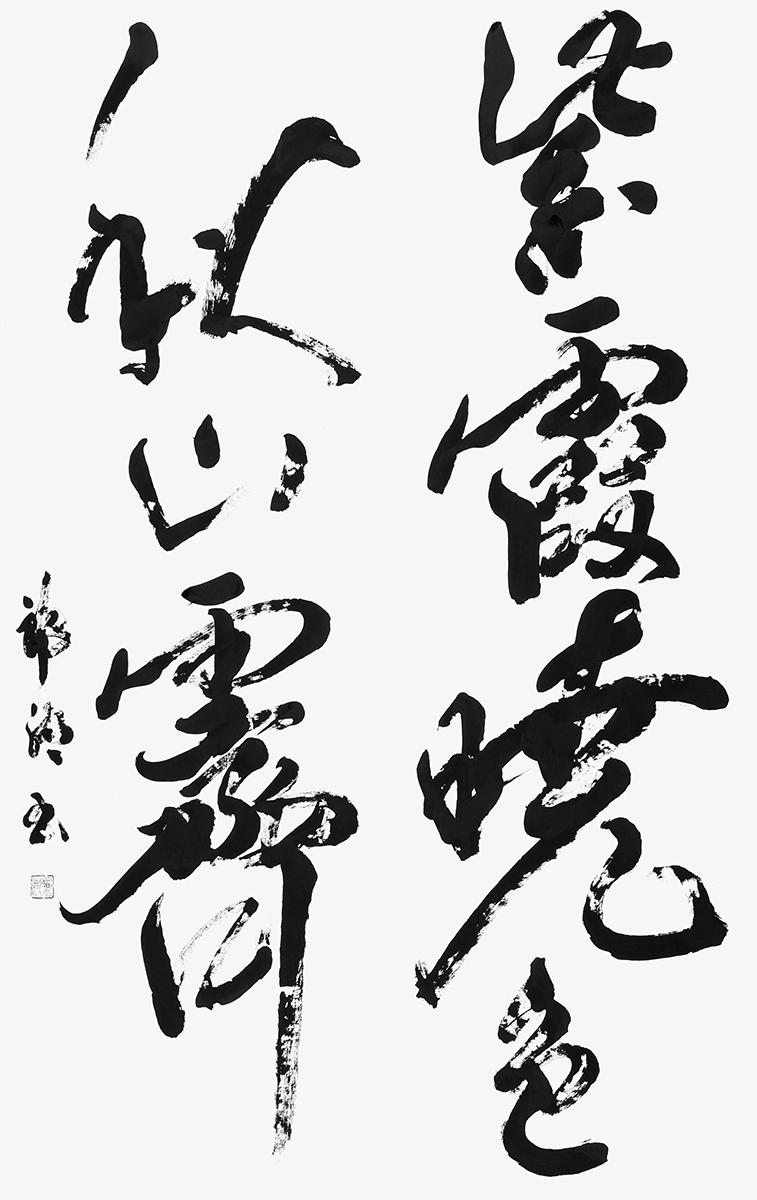 紫霞曉色
秋山霽